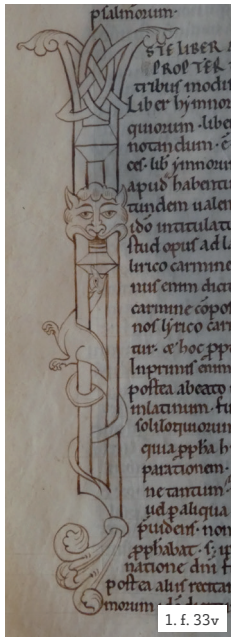 psalmorum·
STE LIBER
PROPTER
tribus modis
Liber hymnor
quiorum· liber
notandum· 
ces· lib ymnoru
apud habentu
tundem ualen
intitulatu
stud opus ad l
lirico carmine
nus enim dicit
carmine compos
nos lyrico car
tur· hoc
Inprimis enim
postea abeato
inlatinum· fu
soliloquiorum
quia ppha h
parationem·
ne tantum·
uel p aliqua
puidens· non
pphabat· s· ip
natione dni f
postea aliis recitan
morum
1. f. 33v